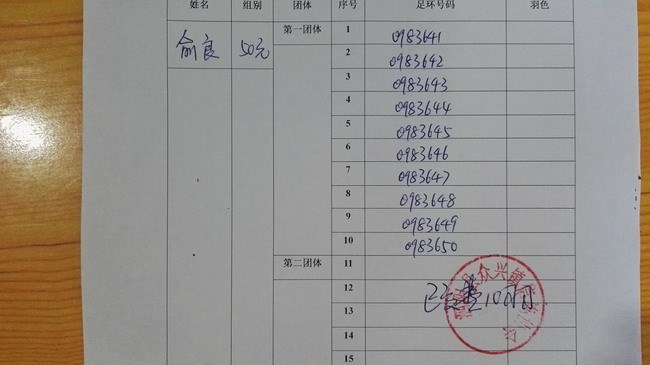 姓名 组别 团体 序号 足环号码 羽色
俞良 50元 第一团体 1 0983641
2 0983642
3 0983643
4 0983644
5 0983645
6 0983646
7 0983647
8 0983648
9 0983649
10 0983650
第二团体 11
12
13
14
15
众兴镇